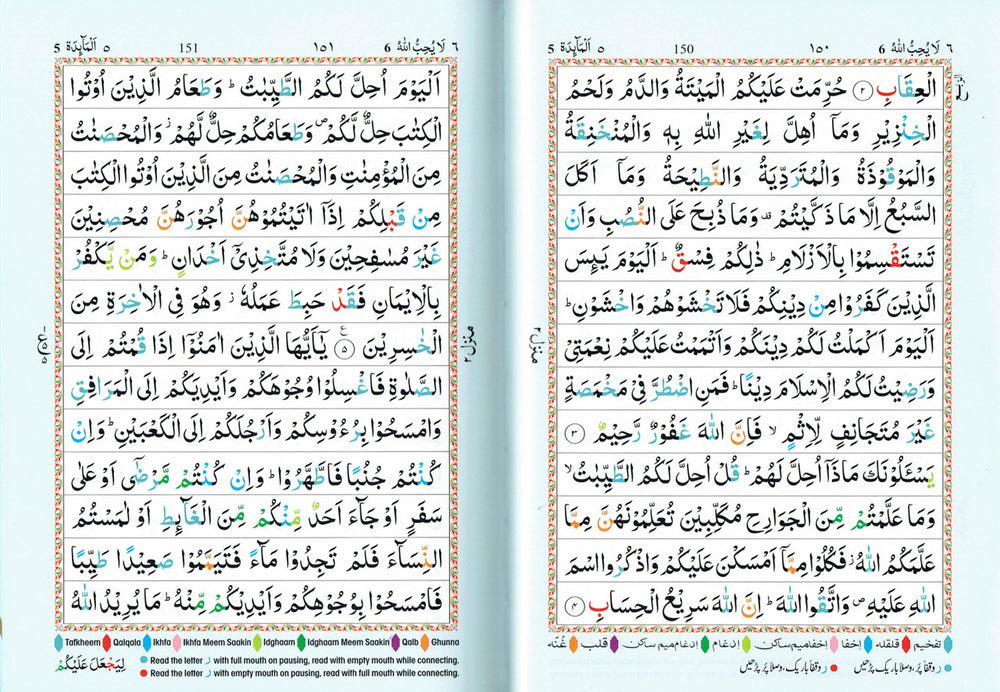 ٦ لَا یُحِبُّ اللهُ 6
١٥٠
150
٥ اَلْمَآىِٕدَة 5
الْعِقَابِ ﴿٢﴾ حُرِّمَتْ عَلَیْكُمُ الْمَیْتَةُ وَالدَّمُ وَلَحْمُ
الْخِنْزِیْرِ وَمَاۤ اُهِلَّ لِغَیْرِ اللهِ بِهٖ وَالْمُنْخَنِقَةُ
وَالْمَوْقُوْذَةُ وَالْمُتَرَدِّیَةُ وَالنَّطِیْحَةُ وَمَاۤ اَكَلَ
السَّبُعُ اِلَّا مَا ذَكَّیْتُمْ ۫ وَمَا ذُبِحَ عَلَی النُّصُبِ وَاَنْ
تَسْتَقْسِمُوْا بِالْاَزْلَامِ ؕ ذٰلِكُمْ فِسْقٌ ؕ اَلْیَوْمَ یَىِٕسَ
الَّذِیْنَ كَفَرُوْا مِنْ دِیْنِكُمْ فَلَا تَخْشَوْهُمْ وَاخْشَوْنِ ؕ
اَلْیَوْمَ اَكْمَلْتُ لَكُمْ دِیْنَكُمْ وَاَتْمَمْتُ عَلَیْكُمْ نِعْمَتِیْ
وَرَضِیْتُ لَكُمُ الْاِسْلَامَ دِیْنًا ؕ فَمَنِ اضْطُرَّ فِیْ مَخْمَصَةٍ
غَیْرَ مُتَجَانِفٍ لِّاِثْمٍ ۙ فَاِنَّ اللهَ غَفُوْرٌ رَّحِیْمٌ ﴿٣﴾
یَسْـَٔلُوْنَكَ مَاذَاۤ اُحِلَّ لَهُمْ ؕ قُلْ اُحِلَّ لَكُمُ الطَّیِّبٰتُ ۙ
وَمَا عَلَّمْتُمْ مِّنَ الْجَوَارِحِ مُكَلِّبِیْنَ تُعَلِّمُوْنَهُنَّ مِمَّا
عَلَّمَكُمُ اللهُ ؗ فَكُلُوْا مِمَّاۤ اَمْسَكْنَ عَلَیْكُمْ وَاذْكُرُوا اسْمَ
اللهِ عَلَیْهِ ۪ وَاتَّقُوا اللهَ ؕ اِنَّ اللهَ سَرِیْعُ الْحِسَابِ ﴿٤﴾
منزل ٢
تفخیم قلقله إخفا إخفامیم ساکن إدغام إدغام میم ساکن قلب غُنّه
ر وقفاً پُر، وصلاً باریک پڑھیں
ر وقفاً باریک، وصلاً پُر پڑھیں
٦ لَا یُحِبُّ اللهُ 6
١٥١
151
٥ اَلْمَآىِٕدَة 5
اَلْیَوْمَ اُحِلَّ لَكُمُ الطَّیِّبٰتُ ؕ وَطَعَامُ الَّذِیْنَ اُوْتُوا
الْكِتٰبَ حِلٌّ لَّكُمْ ۪ وَطَعَامُكُمْ حِلٌّ لَّهُمْ ؗ وَالْمُحْصَنٰتُ
مِنَ الْمُؤْمِنٰتِ وَالْمُحْصَنٰتُ مِنَ الَّذِیْنَ اُوْتُوا الْكِتٰبَ
مِنْ قَبْلِكُمْ اِذَاۤ اٰتَیْتُمُوْهُنَّ اُجُوْرَهُنَّ مُحْصِنِیْنَ
غَیْرَ مُسٰفِحِیْنَ وَلَا مُتَّخِذِیْۤ اَخْدَانٍ ؕ وَمَنْ یَّكْفُرْ
بِالْاِیْمَانِ فَقَدْ حَبِطَ عَمَلُهٗ ؗ وَهُوَ فِی الْاٰخِرَةِ مِنَ
الْخٰسِرِیْنَ ﴿٥﴾ یٰۤاَیُّهَا الَّذِیْنَ اٰمَنُوْۤا اِذَا قُمْتُمْ اِلَی
الصَّلٰوةِ فَاغْسِلُوْا وُجُوْهَكُمْ وَاَیْدِیَكُمْ اِلَی الْمَرَافِقِ
وَامْسَحُوْا بِرُءُوْسِكُمْ وَاَرْجُلَكُمْ اِلَی الْكَعْبَیْنِ ؕ وَاِنْ
كُنْتُمْ جُنُبًا فَاطَّهَّرُوْا ؕ وَاِنْ كُنْتُمْ مَّرْضٰۤی اَوْ عَلٰی
سَفَرٍ اَوْ جَآءَ اَحَدٌ مِّنْكُمْ مِّنَ الْغَآىِٕطِ اَوْ لٰمَسْتُمُ
النِّسَآءَ فَلَمْ تَجِدُوْا مَآءً فَتَیَمَّمُوْا صَعِیْدًا طَیِّبًا
فَامْسَحُوْا بِوُجُوْهِكُمْ وَاَیْدِیْكُمْ مِّنْهُ ؕ مَا یُرِیْدُ اللهُ
منزل ٢
Tafkheem Qalqala Ikhfa Ikhfa Meem Saakin Idghaam Idghaam Meem Saakin Qalb Ghunna
لِیَجْعَلَ عَلَیْكُمْ
Read the letter ر with full mouth on pausing, read with empty mouth while connecting.
Read the letter ر with empty mouth on pausing, read with full mouth while connecting.